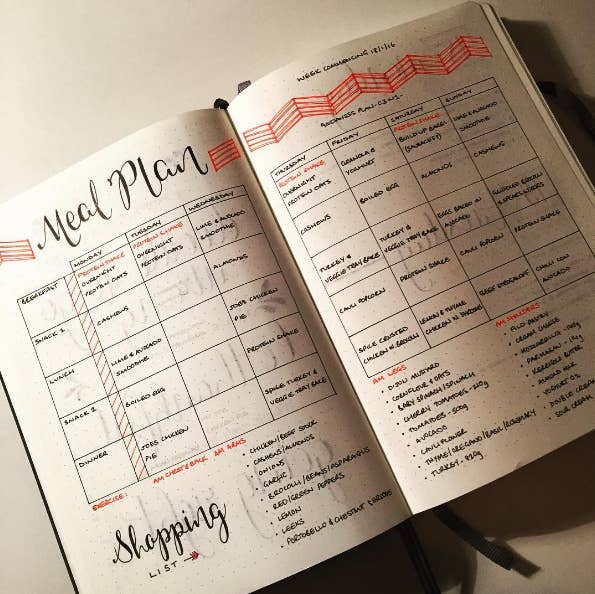 Meal Plan
MONDAY
TUESDAY
WEDNESDAY
BREAKFAST
PROTEIN SHAKE
OVERNIGHT
PROTEIN OATS
PROTEIN SHAKE
OVERNIGHT
PROTEIN OATS
LIME & AVOCADO
SMOOTHIE
SNACK 1
CASHEWS
ALMONDS
LUNCH
LIME & AVOCADO
SMOOTHIE
JOES CHICKEN
PIE
SNACK 2
BOILED EGG
PROTEIN SHAKE
DINNER
JOES CHICKEN
PIE
SPICE TURKEY &
VEGGIE TRAY BAKE
EXERCISE:
AM CHEST & BACK
AM ARMS
Shopping
LIST
CHICKEN/BEEF STOCK
CASHEWS/ALMONDS
ONIONS
GARLIC
BROCOLLI/BEANS/ASPARAGUS
RED/GREEN PEPPERS
LEMON
LEEKS
PORTOBELLO & CHESTNUT
WEEK COMMENCING 18/1/16
PLAN - C3W1 -
THURSDAY
FRIDAY
SATURDAY
SUNDAY
PROTEIN SHAKE
OVERNIGHT
PROTEIN OATS
GRANOLA &
YOGHURT
PROTEIN SHAKE
BUILD UP BAGEL
LIME & AVOCADO
SMOOTHIE
CASHEWS
BOILED EGG
ALMONDS
CASHEWS
TURKEY &
VEGGIE TRAY BAKE
TURKEY &
VEGGIE TRAY BAKE
EGGS BAKED IN
AVOCADO
CAULI POPCORN
PROTEIN SHAKE
CAULI POPCORN
PROTEIN SHAKE
SPICE CRUSTED
CHICKEN
LEMON & THYME
CHICKEN
BEEF STROGANOFF
AVOCADO
AM LEGS
AM SHOULDERS
DIJON MUSTARD
CORNFLOUR & OATS
BABY SPINACH/SPINACH
CHERRY TOMATOES -
TOMATOES - 500g
AVOCADO
CAULIFLOWER
THYME/OREGANO/BASIL/ROSEMARY
TURKEY -
FILO PASTRY
CREAM CHEESE
MOZZARELLA -
PARMASAN -
ALMOND MILK
YOGHURT 0%
DOUBLE CREAM
SOUR CREAM